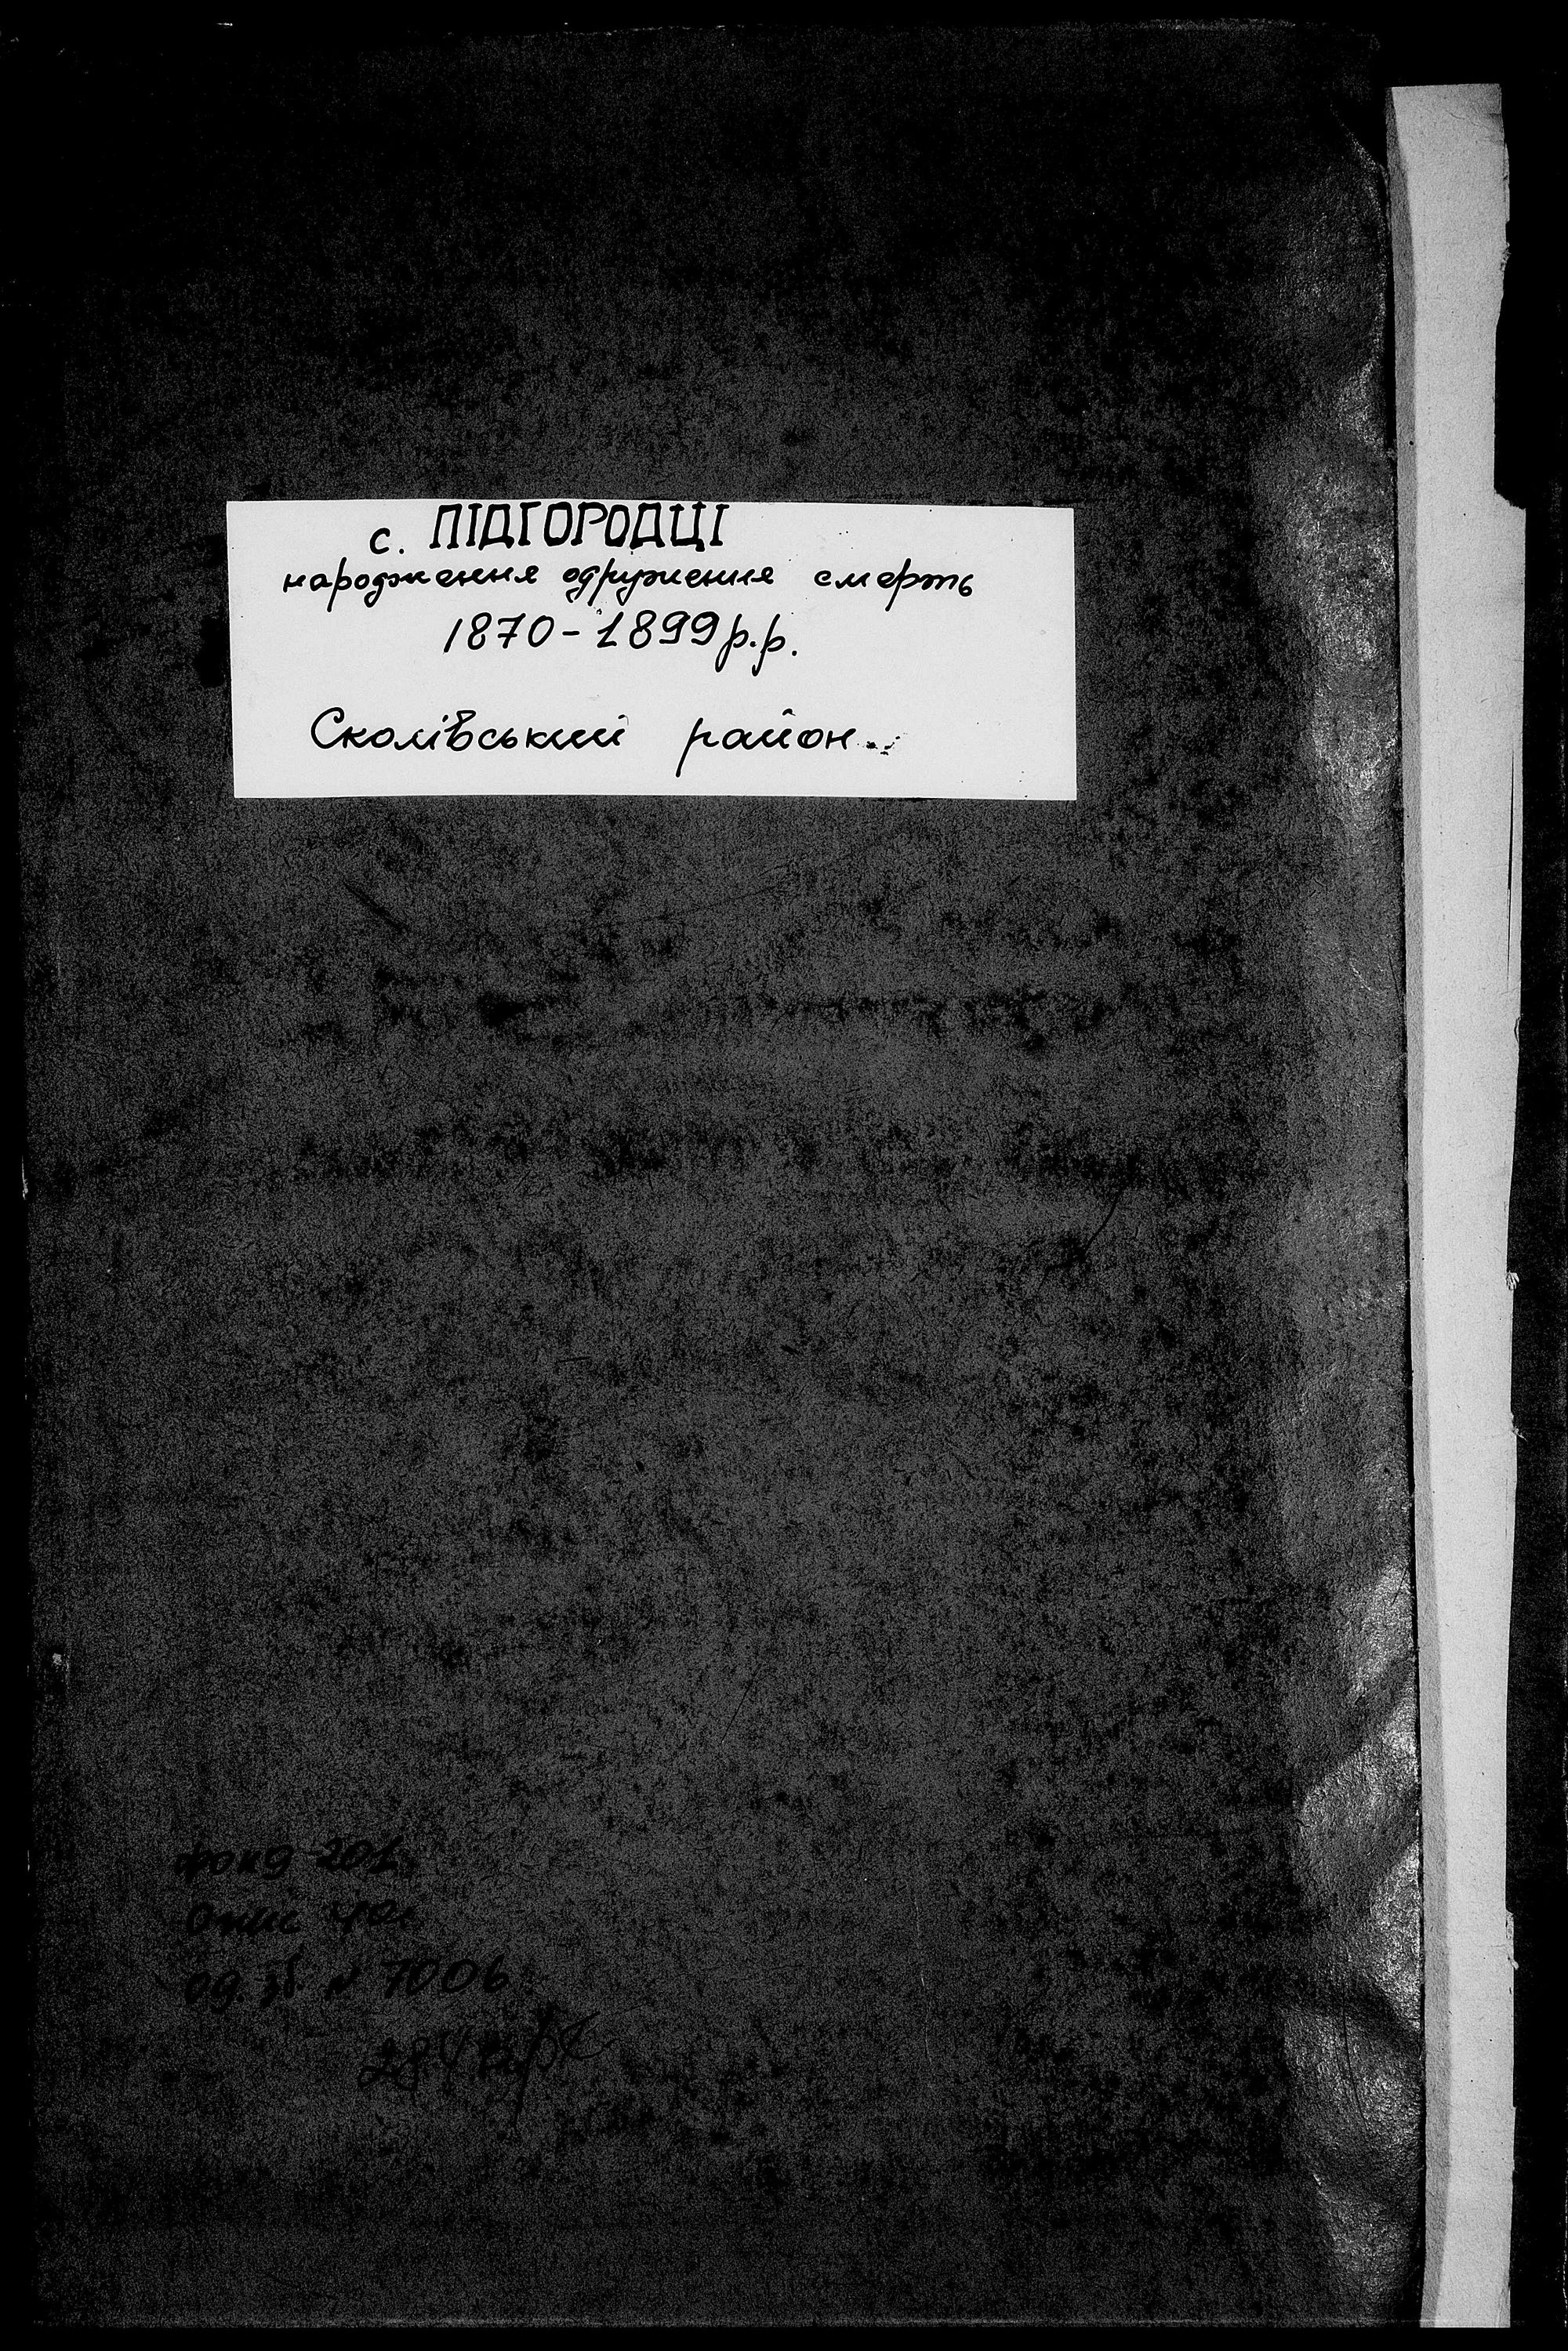 с. ПІДГОРОДЦІ
народження одруження смерть
1870-1899 р.р.
Сколівський район
фонд 201
Опис 4а
од. зб. № 7006